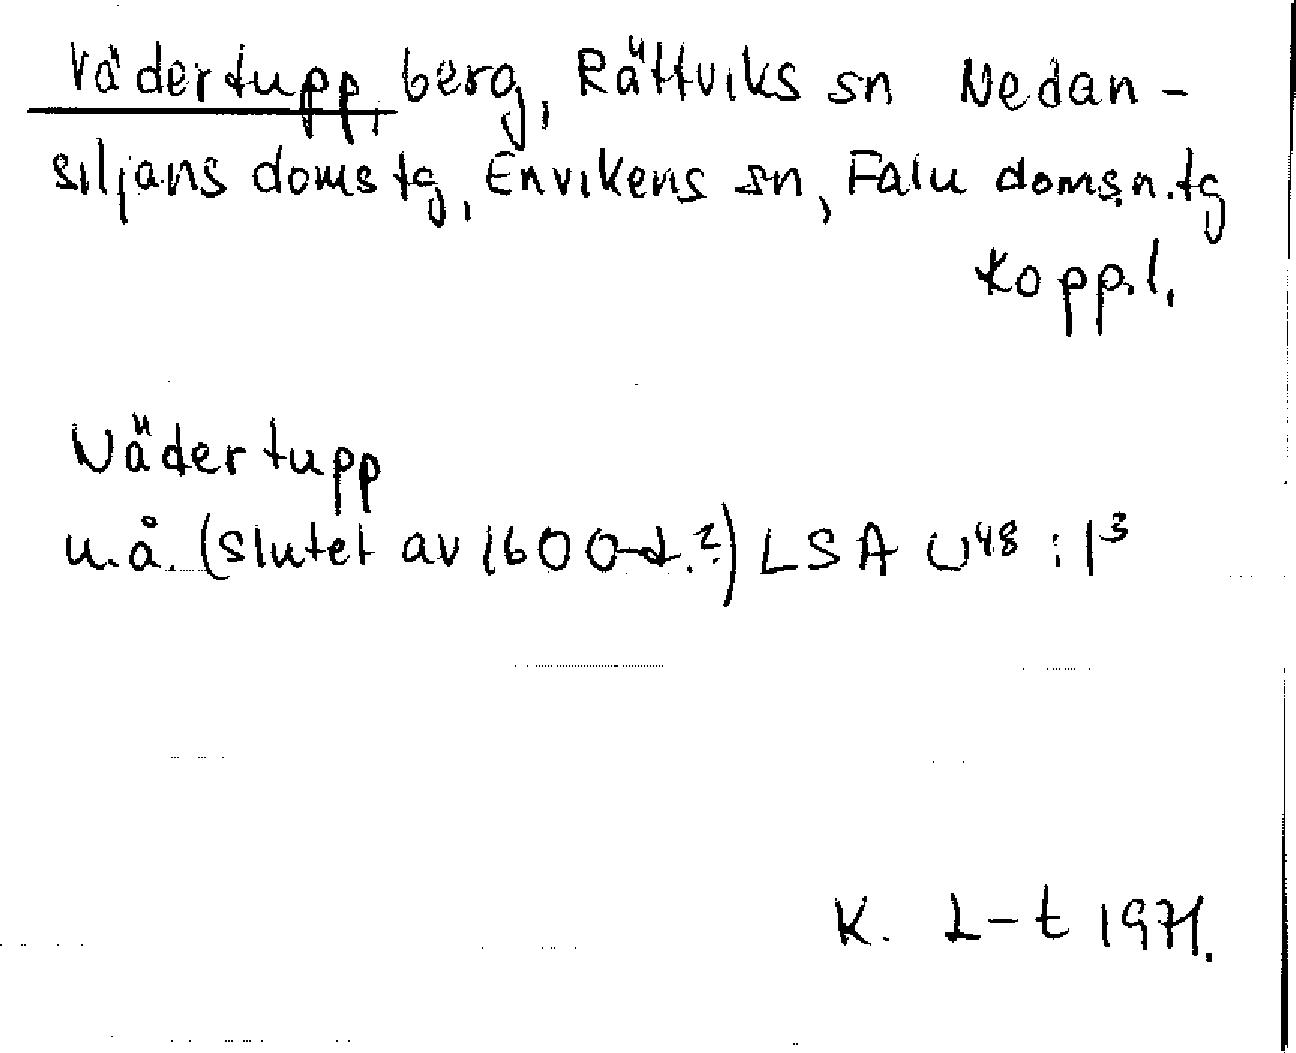 Vädertupp, berg, Rättviks sn Nedan-
siljans domstg, Envikens sn, Falu domsn.tg
Kopp.l.
Vädertupp
u.å. (slutet av 1600-t.?) LSA U48:1³
K. L-t 1971.